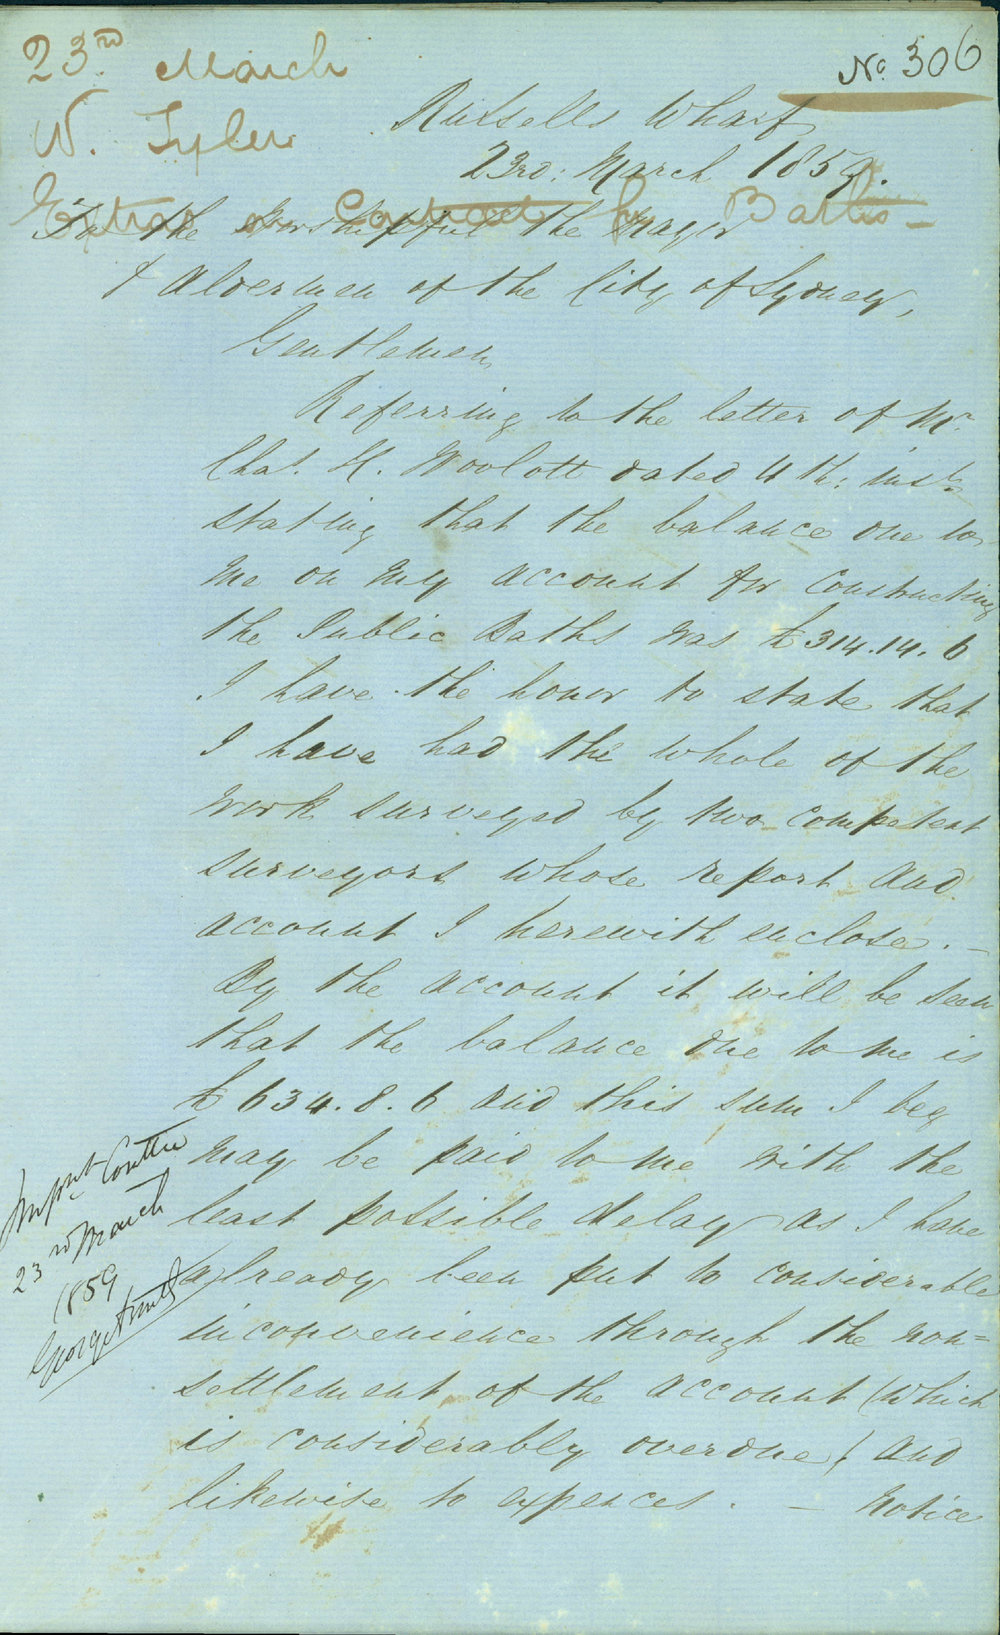 23rd March
No. 306
W. Tyler
Extras on Contract for Baths
Russells Wharf
23rd: March 1859.
To the Worshipful the Mayor
& Aldermen of the City of Sydney,
Gentlemen
Referring to the letter of Mr.
Chas. H. Woolcott dated 4th: inst.
stating that the balance due to
me on my account for constructing
the Public Baths was £314.14.6
I have the honor to state that
I have had the whole of the
work surveyed by two competent
surveyors whose report and
account I herewith enclose. —
By the account it will be seen
that the balance due to me is
£634.8.6 and this sum I beg
may be paid to me with the
least possible delay as I have
already been put to considerable
inconvenience through the non=
settlement of the account (which
is considerably overdue) and
likewise to expences. — Notice
Imprt Comttee
23rd March
1859
George Smith